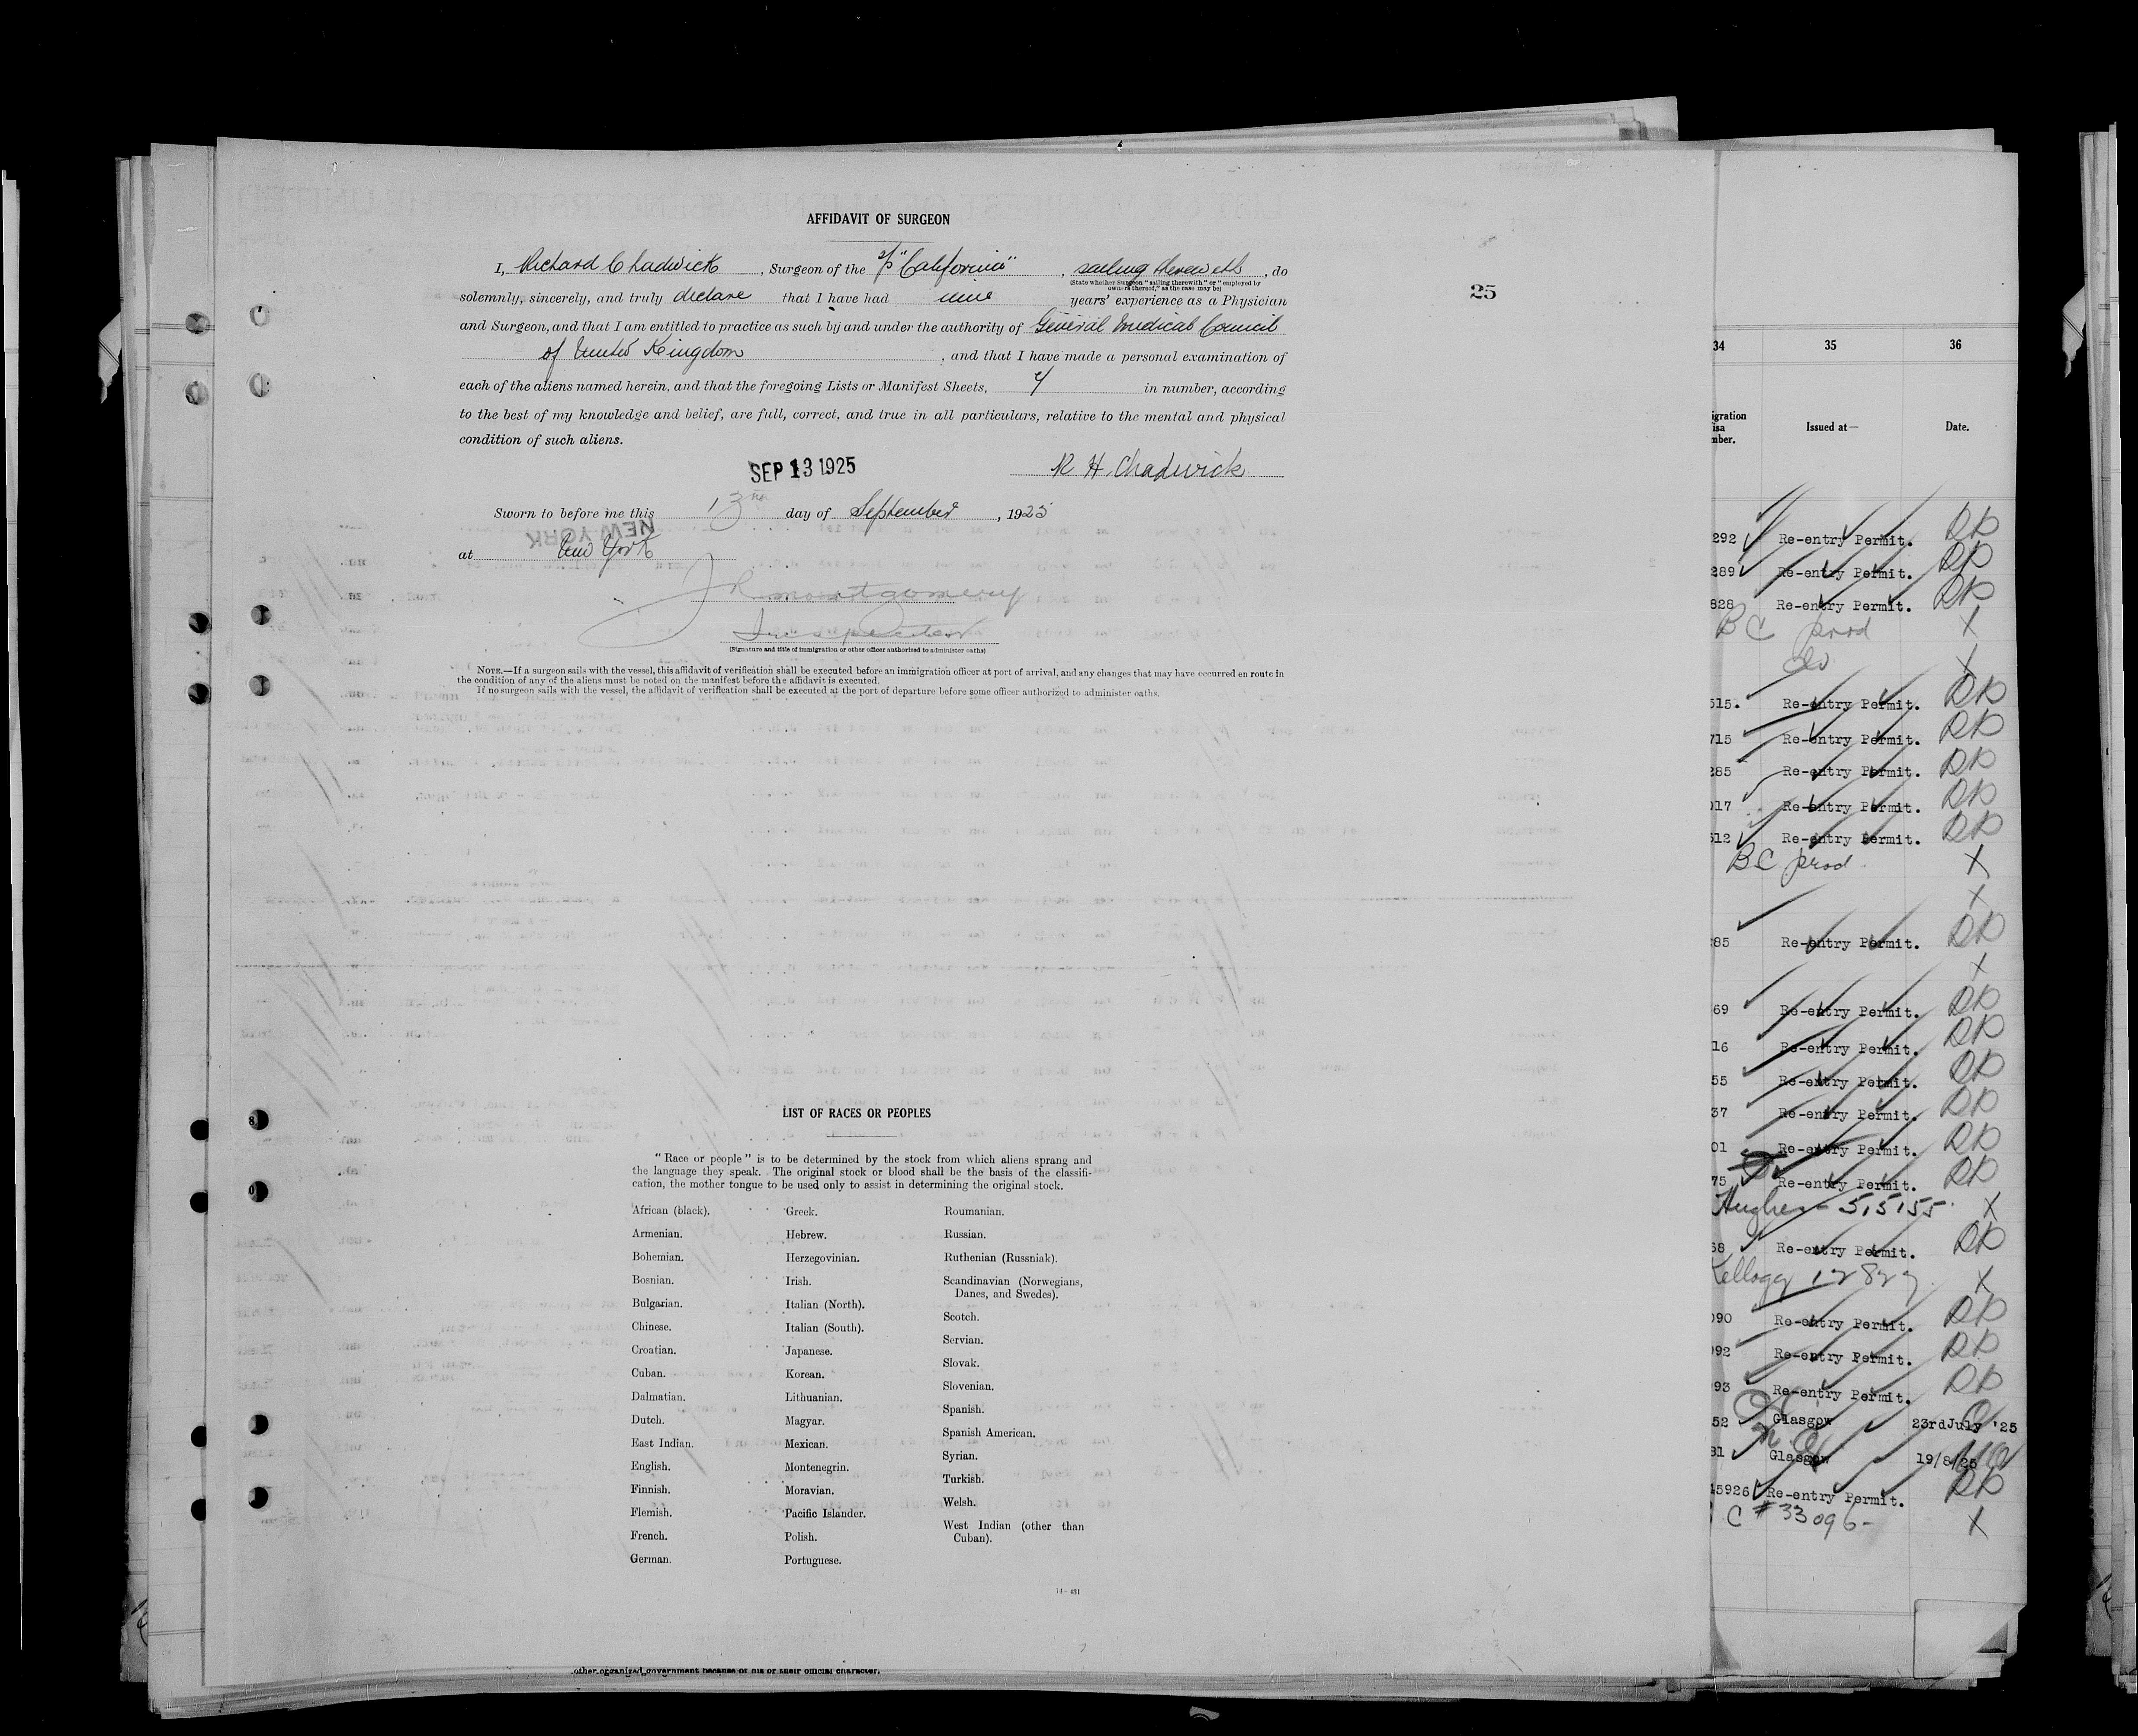 AFFIDAVIT OF SURGEON
I, Richard Chadwick, Surgeon of the S/S "California", sailing therewith, do
(State whether Surgeon "sailing therewith" or "employed by
owners thereof," as the case may be)
solemnly, sincerely, and truly declare that I have had nine years' experience as a Physician
and Surgeon, and that I am entitled to practice as such by and under the authority of General Medical Council
of United Kingdom, and that I have made a personal examination of
each of the aliens named herein, and that the foregoing Lists or Manifest Sheets, in number, according
to the best of my knowledge and belief, are full, correct, and true in all particulars, relative to the mental and physical
condition of such aliens.
SEP 13 1925
R H Chadwick
Sworn to before me this 13 day of September, 1925
NEW YORK
at New York
J R Montgomery
Inspector
(Signature and title of immigration or other officer authorized to administer oaths)
NOTE.—If a surgeon sails with the vessel, this affidavit of verification shall be executed before an immigration officer at port of arrival, and any changes that may have occurred en route in
the condition of any of the aliens must be noted on the manifest before the affidavit is executed.
If no surgeon sails with the vessel, the affidavit of verification shall be executed at the port of departure before some officer authorized to administer oaths.
25
LIST OF RACES OR PEOPLES
"Race or people" is to be determined by the stock from which aliens sprang and
the language they speak. The original stock or blood shall be the basis of the classifi-
cation, the mother tongue to be used only to assist in determining the original stock.
African (black).
Armenian.
Bohemian.
Bosnian.
Bulgarian.
Chinese.
Croatian.
Cuban.
Dalmatian.
Dutch.
East Indian.
English.
Finnish.
Flemish.
French.
German.
Greek.
Hebrew.
Herzegovinian.
Irish.
Italian (North).
Italian (South).
Japanese.
Korean.
Lithuanian.
Magyar.
Mexican.
Montenegrin.
Moravian.
Pacific Islander.
Polish.
Portuguese.
Roumanian.
Russian.
Ruthenian (Russniak).
Scandinavian (Norwegians,
Danes, and Swedes).
Scotch.
Servian.
Slovak.
Slovenian.
Spanish.
Spanish American.
Syrian.
Turkish.
Welsh.
West Indian (other than
Cuban).
other organized government because of his or their official character.
34 35 36
igration
isa
mber.
Issued at—
Date.
292 Re-entry Permit.
289 Re-entry Permit.
828 Re-entry Permit.
BC prod X
do X
515. Re-entry Permit.
715 Re-entry Permit.
285 Re-entry Permit.
017 Re-entry Permit.
512 Re-entry Permit.
BC prod X
X
85 Re-entry Permit.
X
69 Re-entry Permit.
16 Re-entry Permit.
55 Re-entry Permit.
37 Re-entry Permit.
01 Re-entry Permit.
75 Re-entry Permit.
Hughes - 515155 X
68 Re-entry Permit.
Kellogg X
090 Re-entry Permit.
092 Re-entry Permit.
93 Re-entry Permit.
52 Glasgow 23rdJuly '25
81 Glasgow 19/8/25
45926 Re-entry Permit.
C #33096- X